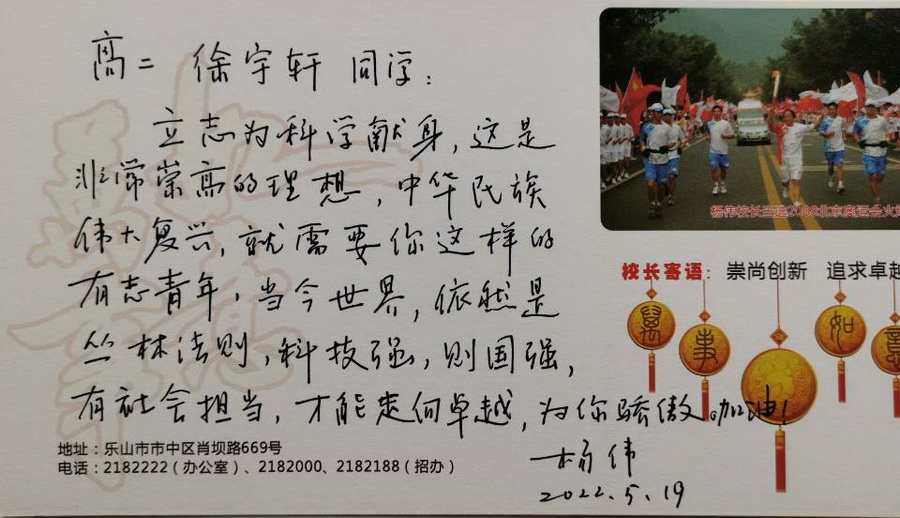 高二 徐宇轩 同学：
立志为科学献身，这是
非常崇高的理想，中华民族
伟大复兴，就需要你这样的
有志青年，当今世界，依然是
丛林法则，科技强，则国强，
有社会担当，才能走向卓越，为你骄傲，加油！
杨伟
2022.5.19
地址：乐山市市中区肖坝路669号
电话：2182222（办公室）、2182000、2182188（招办）
杨伟校长当选2008北京奥运会火炬
校长寄语：崇尚创新 追求卓越
萬 事 如 意